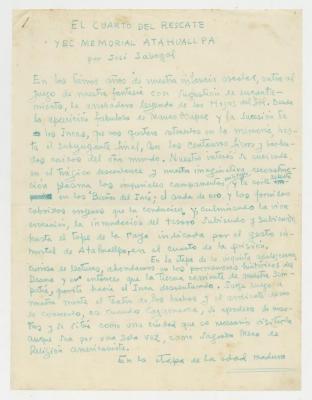 EL CUARTO DEL RESCATE
Y EL MEMORIAL ATAHUALLPA
por José Sabogal
En los tiernos años de nuestra infancia escolar, entra al
juego de nuestra fantasía con sugestión de encanta-
miento, la leyenda de los Hijos del Sol. Desde
la aparición fabulosa de Manco Ccapac y la sucesión de
los Incas, que nos gustaba retenerlos en la memoria, has-
ta el subyugante final, con los centauros fieros y barba-
dos salidos del otro mundo. Nuestro interés se
en el trágico desenlace y nuestra imaginativa reconstruc-
ción plasma los imperiales campamentos, y la corte
en los "Baños del Inca", el anda de oro y los fornidos
cobrizos que la conducían y, culminando la vice
la inundación del tesoro subiendo y subiendo
hasta el tope de la raya indicada por el gesto in-
mortal de Atahuallpa, en el cuarto de la prisión.
En la etapa de la inquieta adolescencia
curiosa de destinos, ahondamos en los pormenores históricos del
Drama y un intenso que la tierra caliente de nuestra sim-
patía, brota hacia el Inca desventurado. Surge luego a
nuestra mente el Teatro de los hechos y el ambiente donde
se comenta, es cuando Cajamarca, se apodera de noso-
tros y se sitúa como una ciudad que es necesario visitarla
aunque sea por una sola vez, como sagrada Meca de
Religión americanista.
En la etapa de la edad madura